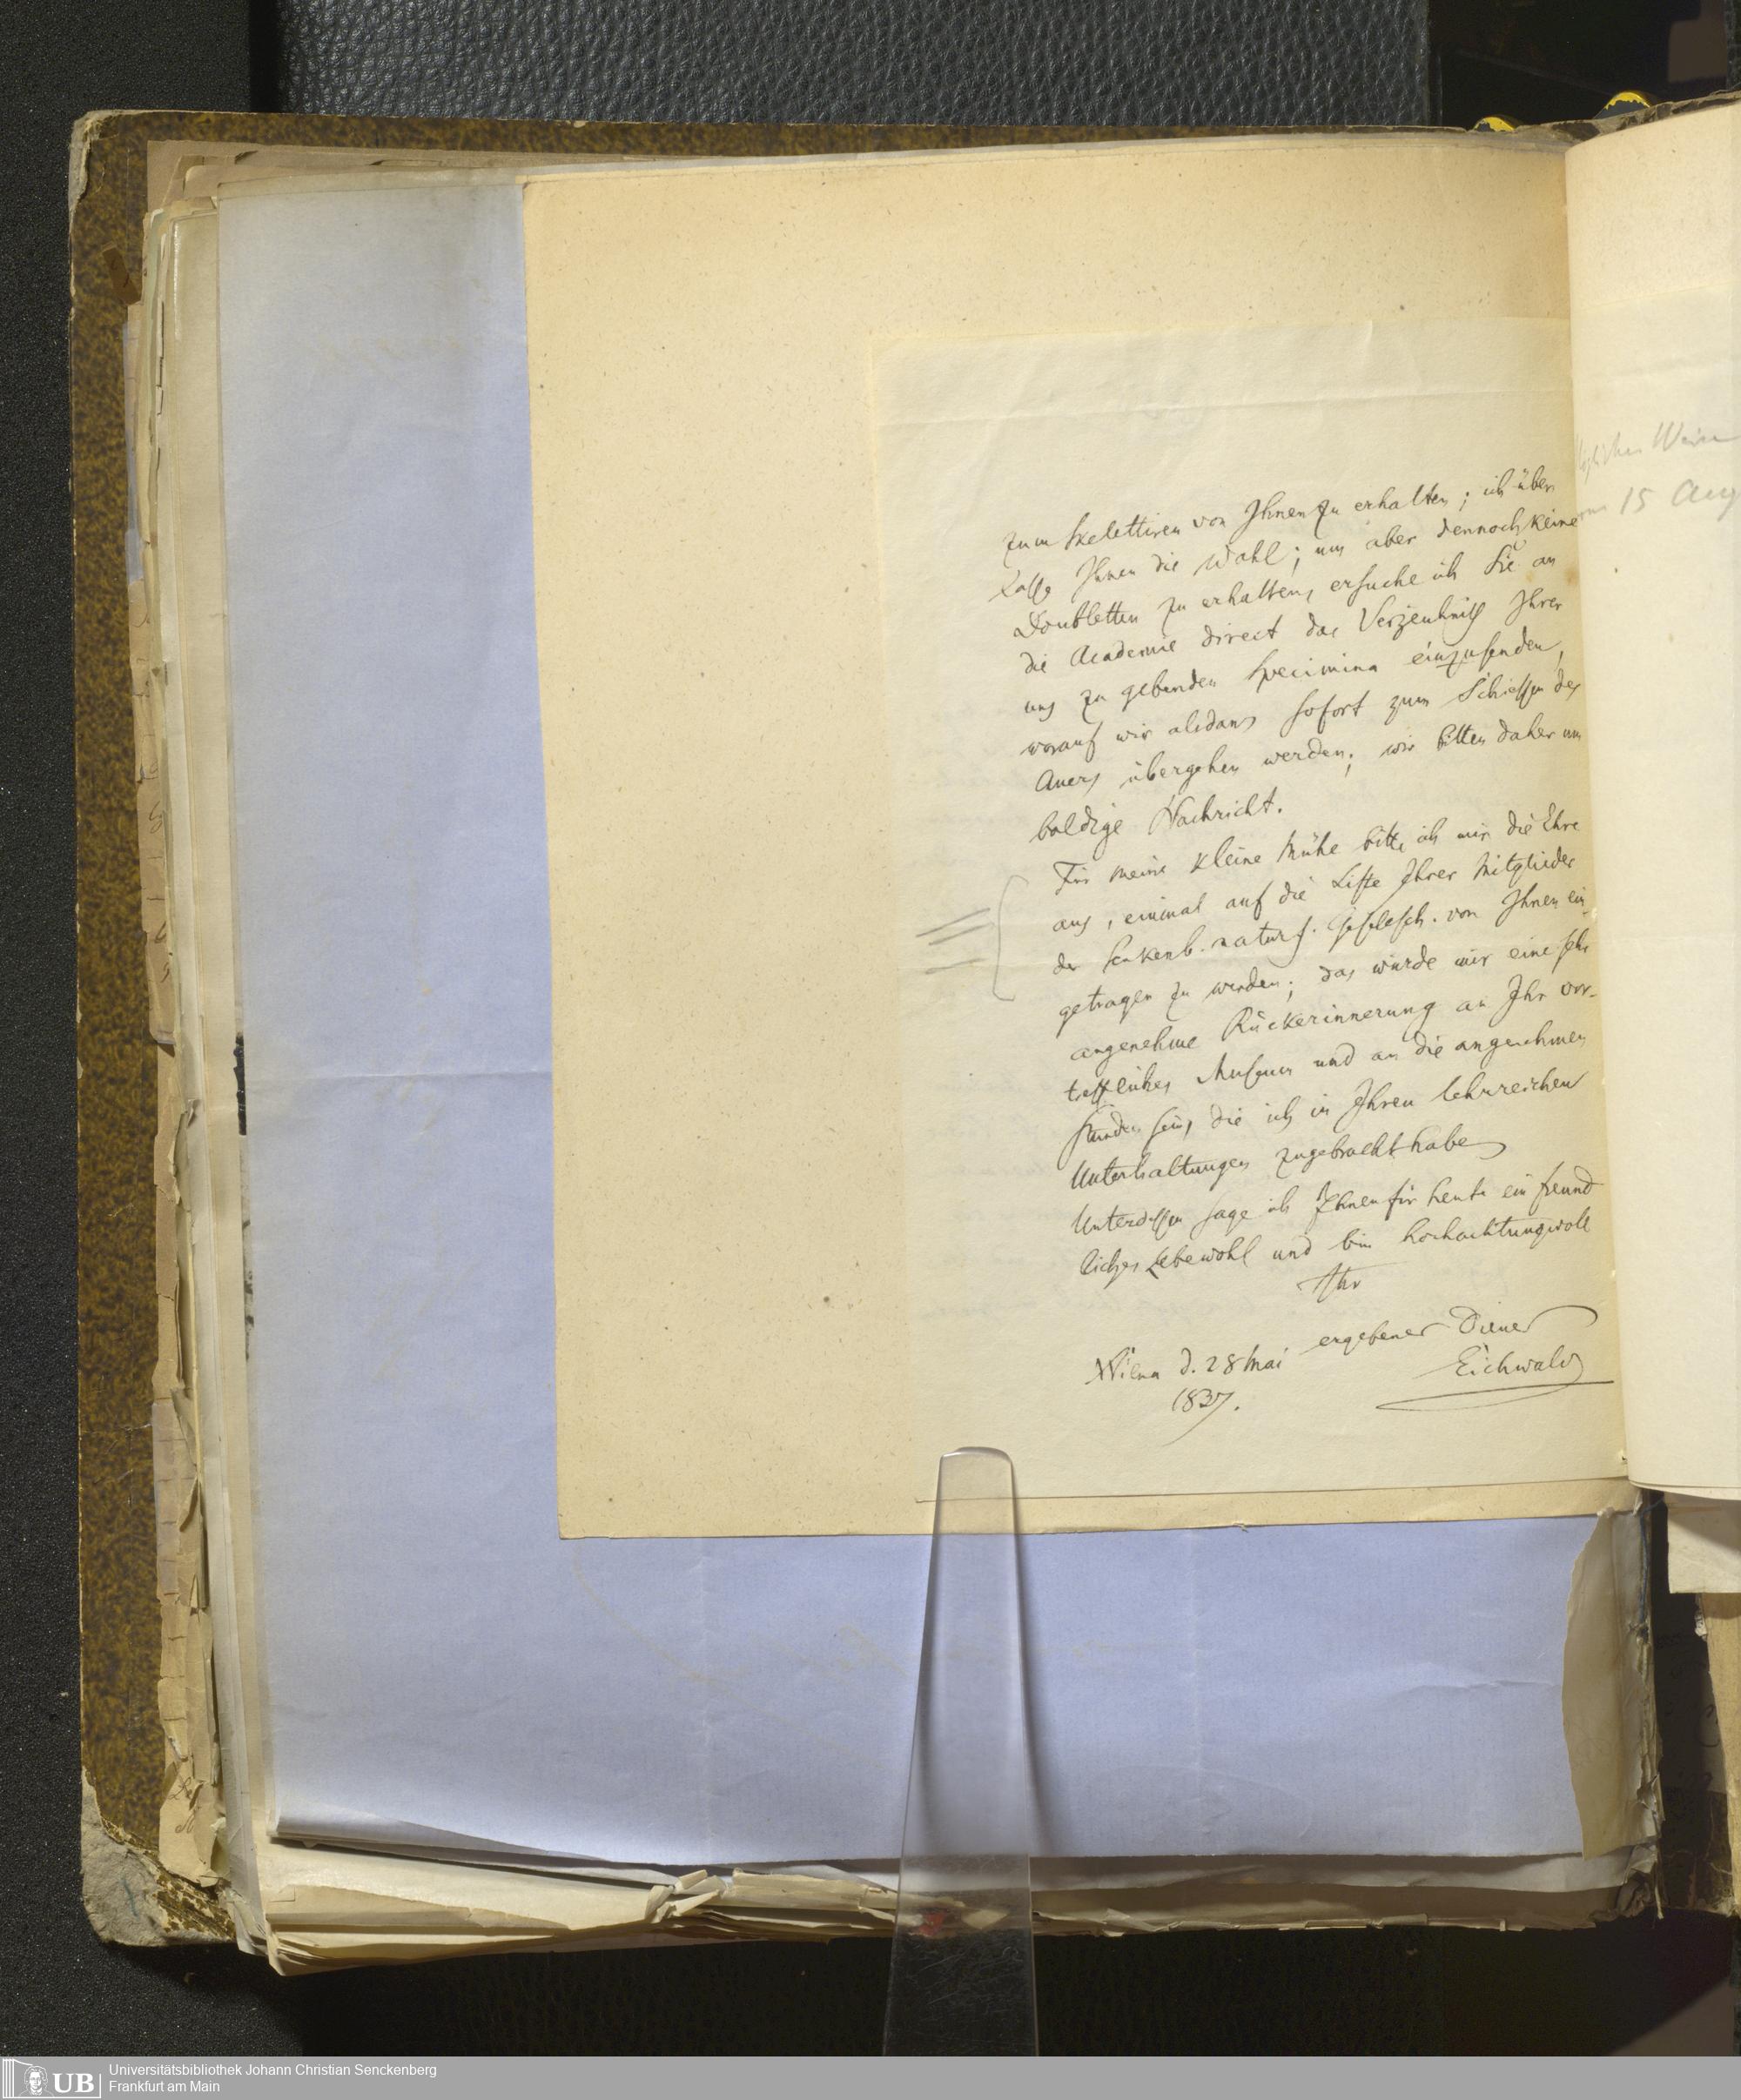 zum Skelettiren von Ihnen zu erhalten; ich über
lasse Ihnen die Wahl; um aber dennoch keine
Doubletten zu erhalten, ersuche ich Sie an
die Academie direct das Verzeichniß Ihrer
uns zu gebenden Specimina einzusenden,
worauf wir alsdann sofort zum Schiessen des
Auers übergehen werden; wir bitten daher um
baldige Nachricht.
Für meine kleine Mühe bitte ich mir die Ehre
aus, einmal auf die Liste Ihrer Mitglieder
der Senkenb. naturf. Gesellsch. von Ihnen ein-
getragen zu werden; das würde mir eine sehr
angenehme Rückerinnerung an Ihr vor-
treffliches Museum und an die angenehmen
Stunden sein, die ich in Ihren lehrreichen
Unterhaltungen zugebracht habe
Unterdessen sage ich Ihnen für heute ein freund
liches Lebewohl und bin hochachtungsvoll
Ihr
ergebener Diener
Eichwald
Wilna d. 28 Mai
1837.
15 Aug
Universitätsbibliothek Johann Christian Senckenberg
Frankfurt am Main
UB